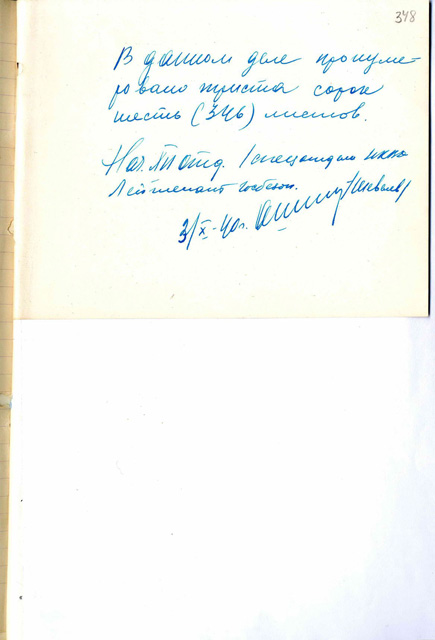 348
В данном деле пронуме-
ровано триста сорок
шесть (346) листов.
Нач. отд. 1 спецотдела НКВД
Лейтенант госбезоп.
3/X-40г.